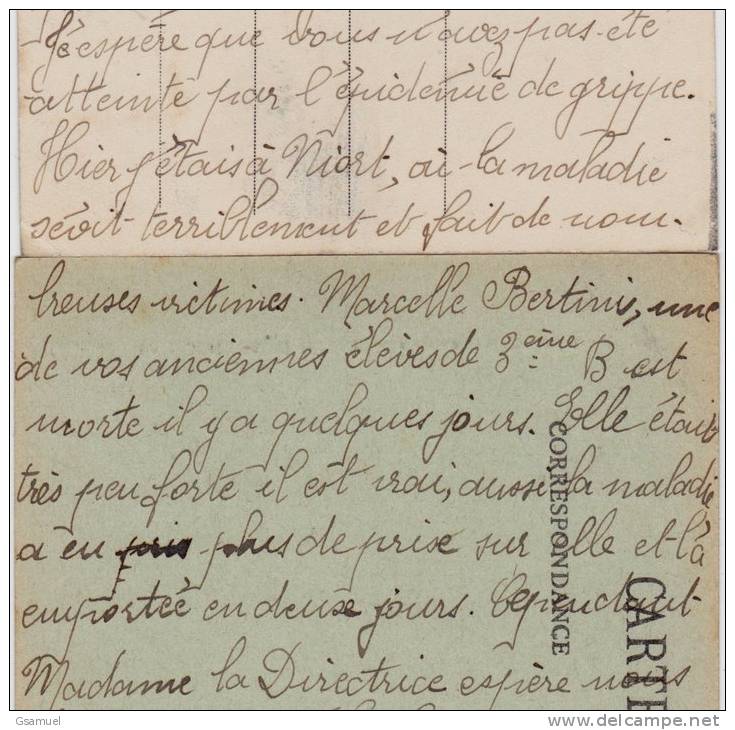 J'espère que vous n'avez pas été
atteinte par l'épidémie de grippe.
Hier j'étais à Niort, où la maladie
sévit terriblement et fait de nom-
breuses victimes. Marcelle Bertinis, une
de vos anciennes élèves de 3ème B est
morte il y a quelques jours. Elle était
très peu forte il est vrai, aussi la maladie
a eu plus de prise sur elle et l'a
emportée en deux jours. Cependant
Madame la Directrice espère nous
CORRESPONDANCE
CARTE
Gsamuel
www.delcampe.net